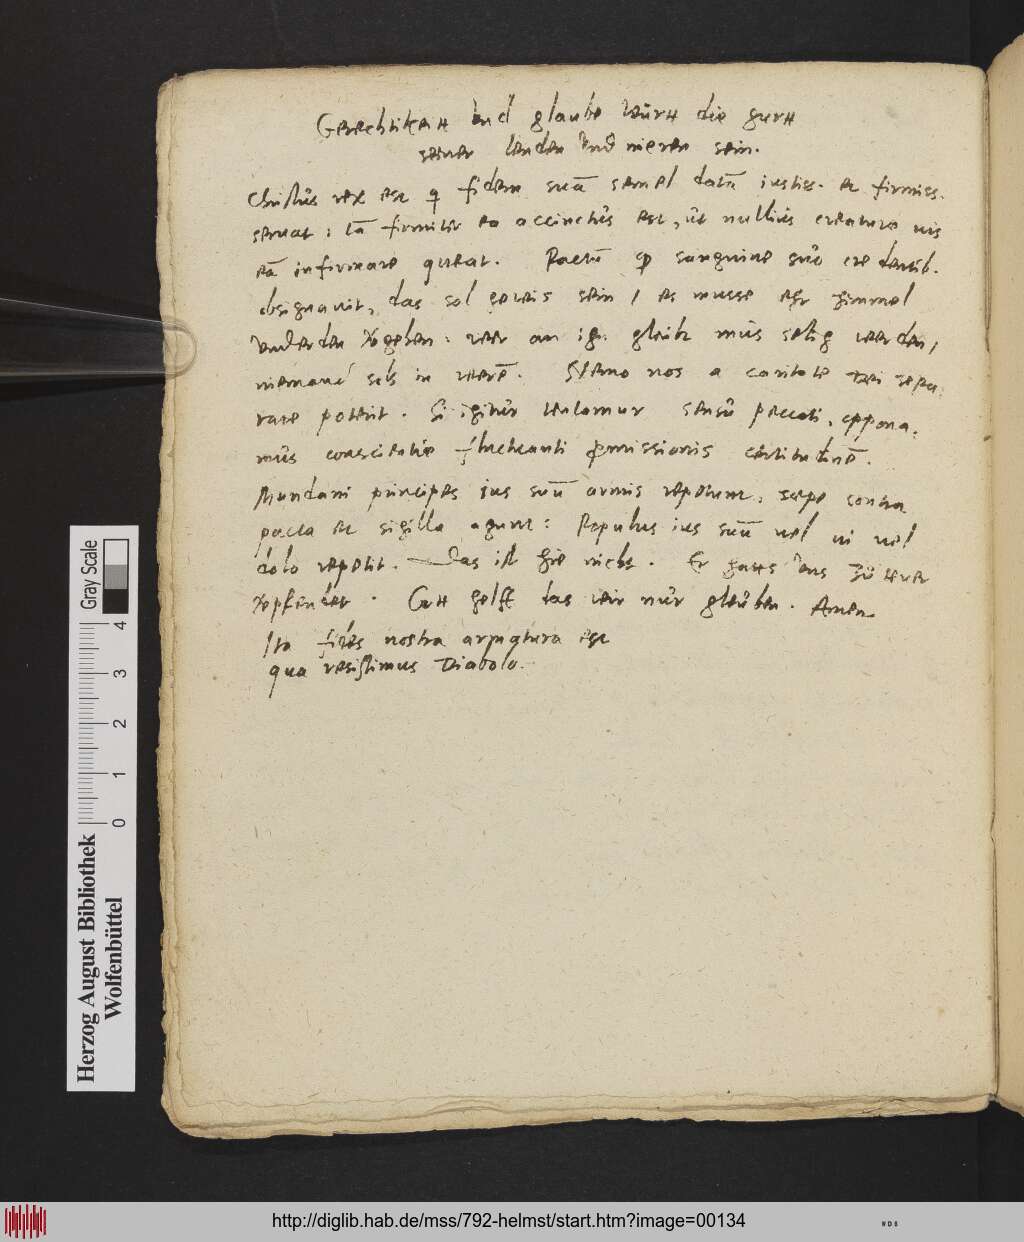 Gerechtikeitt vnd glaube wurtt die gurtt
seiner lenden vnd nieren sein.
Christus rex est qi fidem suā semel datā iustis. et firmiss.
seruat: tā firmiter ea accinctus est, ut nullius creaturae uis
eā infirmare queat. Pactū qđ sanguine suo credentib.
obsignauit, das sol gewis sein / es musse ehr himmel
vnd erden vergehen: wer an ihn gleubt mus selig werden,
niemand sols in weren̄. Nemo nos a caritate Dei sepa
rare poterit. Si igitur tentamur sensu peccati, oppona:
mus conscientie fluctuanti promissionis certitudinē.
Mundani principes ius suū armis repetunt, sepe contra
pacta et sigilla agunt: Populus ius suū uel ui uel
dolo repetit. Das ist hie nicht. Er hatts vns zu tewr
verpfendet. Gott helff das wir nur gleuben. Amen
Ita fides nostra armatura est
qua resistimus Diabolo.
Gray Scale
0 1 2 3 4
Herzog August Bibliothek
Wolfenbüttel
http://diglib.hab.de/mss/792-helmst/start.htm?image=00134